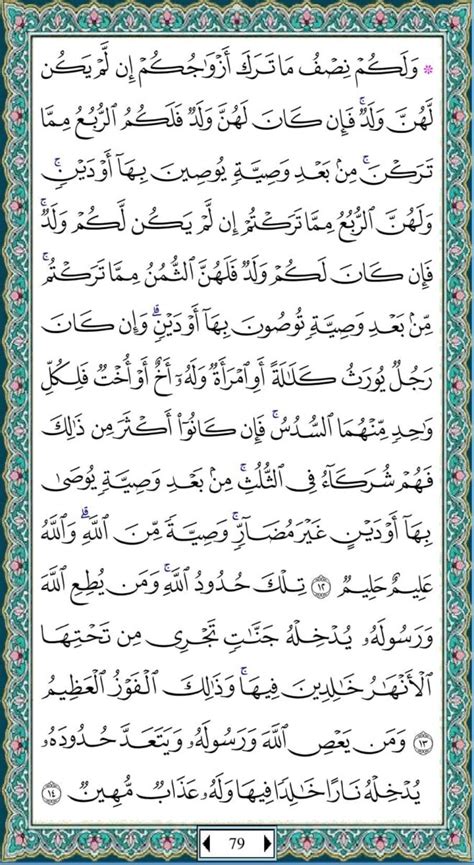 ۞ وَلَكُمْ نِصْفُ مَا تَرَكَ أَزْوَٰجُكُمْ إِن لَّمْ يَكُن
لَّهُنَّ وَلَدٌۚ فَإِن كَانَ لَهُنَّ وَلَدٌ فَلَكُمُ ٱلرُّبُعُ مِمَّا
تَرَكْنَۚ مِنۢ بَعْدِ وَصِيَّةٍ يُوصِينَ بِهَآ أَوْ دَيْنٍۚ
وَلَهُنَّ ٱلرُّبُعُ مِمَّا تَرَكْتُمْ إِن لَّمْ يَكُن لَّكُمْ وَلَدٌۚ
فَإِن كَانَ لَكُمْ وَلَدٌ فَلَهُنَّ ٱلثُّمُنُ مِمَّا تَرَكْتُمۚ
مِّنۢ بَعْدِ وَصِيَّةٍ تُوصُونَ بِهَآ أَوْ دَيْنٍۗ وَإِن كَانَ
رَجُلٌ يُورَثُ كَلَٰلَةً أَوِ ٱمْرَأَةٌ وَلَهُۥٓ أَخٌ أَوْ أُخْتٌ فَلِكُلِّ
وَٰحِدٍ مِّنْهُمَا ٱلسُّدُسُۚ فَإِن كَانُوٓا۟ أَكْثَرَ مِن ذَٰلِكَ
فَهُمْ شُرَكَآءُ فِى ٱلثُّلُثِۚ مِنۢ بَعْدِ وَصِيَّةٍ يُوصَىٰ
بِهَآ أَوْ دَيْنٍ غَيْرَ مُضَآرٍّۚ وَصِيَّةً مِّنَ ٱللَّهِۗ وَٱللَّهُ
عَلِيمٌ حَلِيمٌ ١٢ تِلْكَ حُدُودُ ٱللَّهِۚ وَمَن يُطِعِ ٱللَّهَ
وَرَسُولَهُۥ يُدْخِلْهُ جَنَّٰتٍ تَجْرِى مِن تَحْتِهَا
ٱلْأَنْهَٰرُ خَٰلِدِينَ فِيهَاۚ وَذَٰلِكَ ٱلْفَوْزُ ٱلْعَظِيمُ
١٣ وَمَن يَعْصِ ٱللَّهَ وَرَسُولَهُۥ وَيَتَعَدَّ حُدُودَهُۥ
يُدْخِلْهُ نَارًا خَٰلِدًا فِيهَا وَلَهُۥ عَذَابٌ مُّهِينٌ ١٤
79